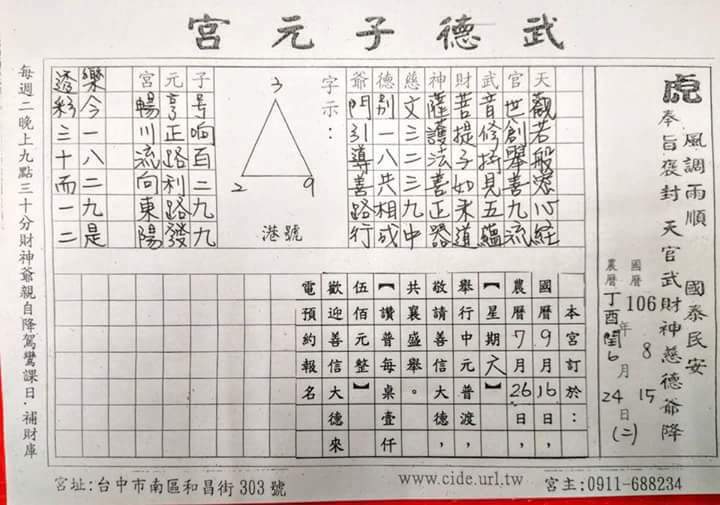 武德子元宮
風調雨順 國泰民安
虎 奉旨褒封 天官武財神慈德爺降
國曆106年8月15日(二)
農曆丁酉閏6月24日
天觀若般心經
官世創舉善九流
武昔修持見五蘊
財菩提子如來道
神薩護法喜正器
慈文三二三九中
德別一八共相成
爺門引導善路行
字示:
3
2 9
港號
子号响百二九九
元亨正路利路發
宮暢川流向東陽
樂今一八二九是
透彩三十而一二
本宮訂於:
國曆9月16日,
農曆7月26日,
【星期六】
舉行中元普渡,
敬請善信大德,
共襄盛舉。
【讚普每桌壹仟
伍佰元整】
歡迎善信大德來
電預約報名
每週二晚上九點三十分財神爺親自降駕鸞課日.補財庫
宮址:台中市南區和昌街303號
www.cide.url.tw
宮主:0911-688234